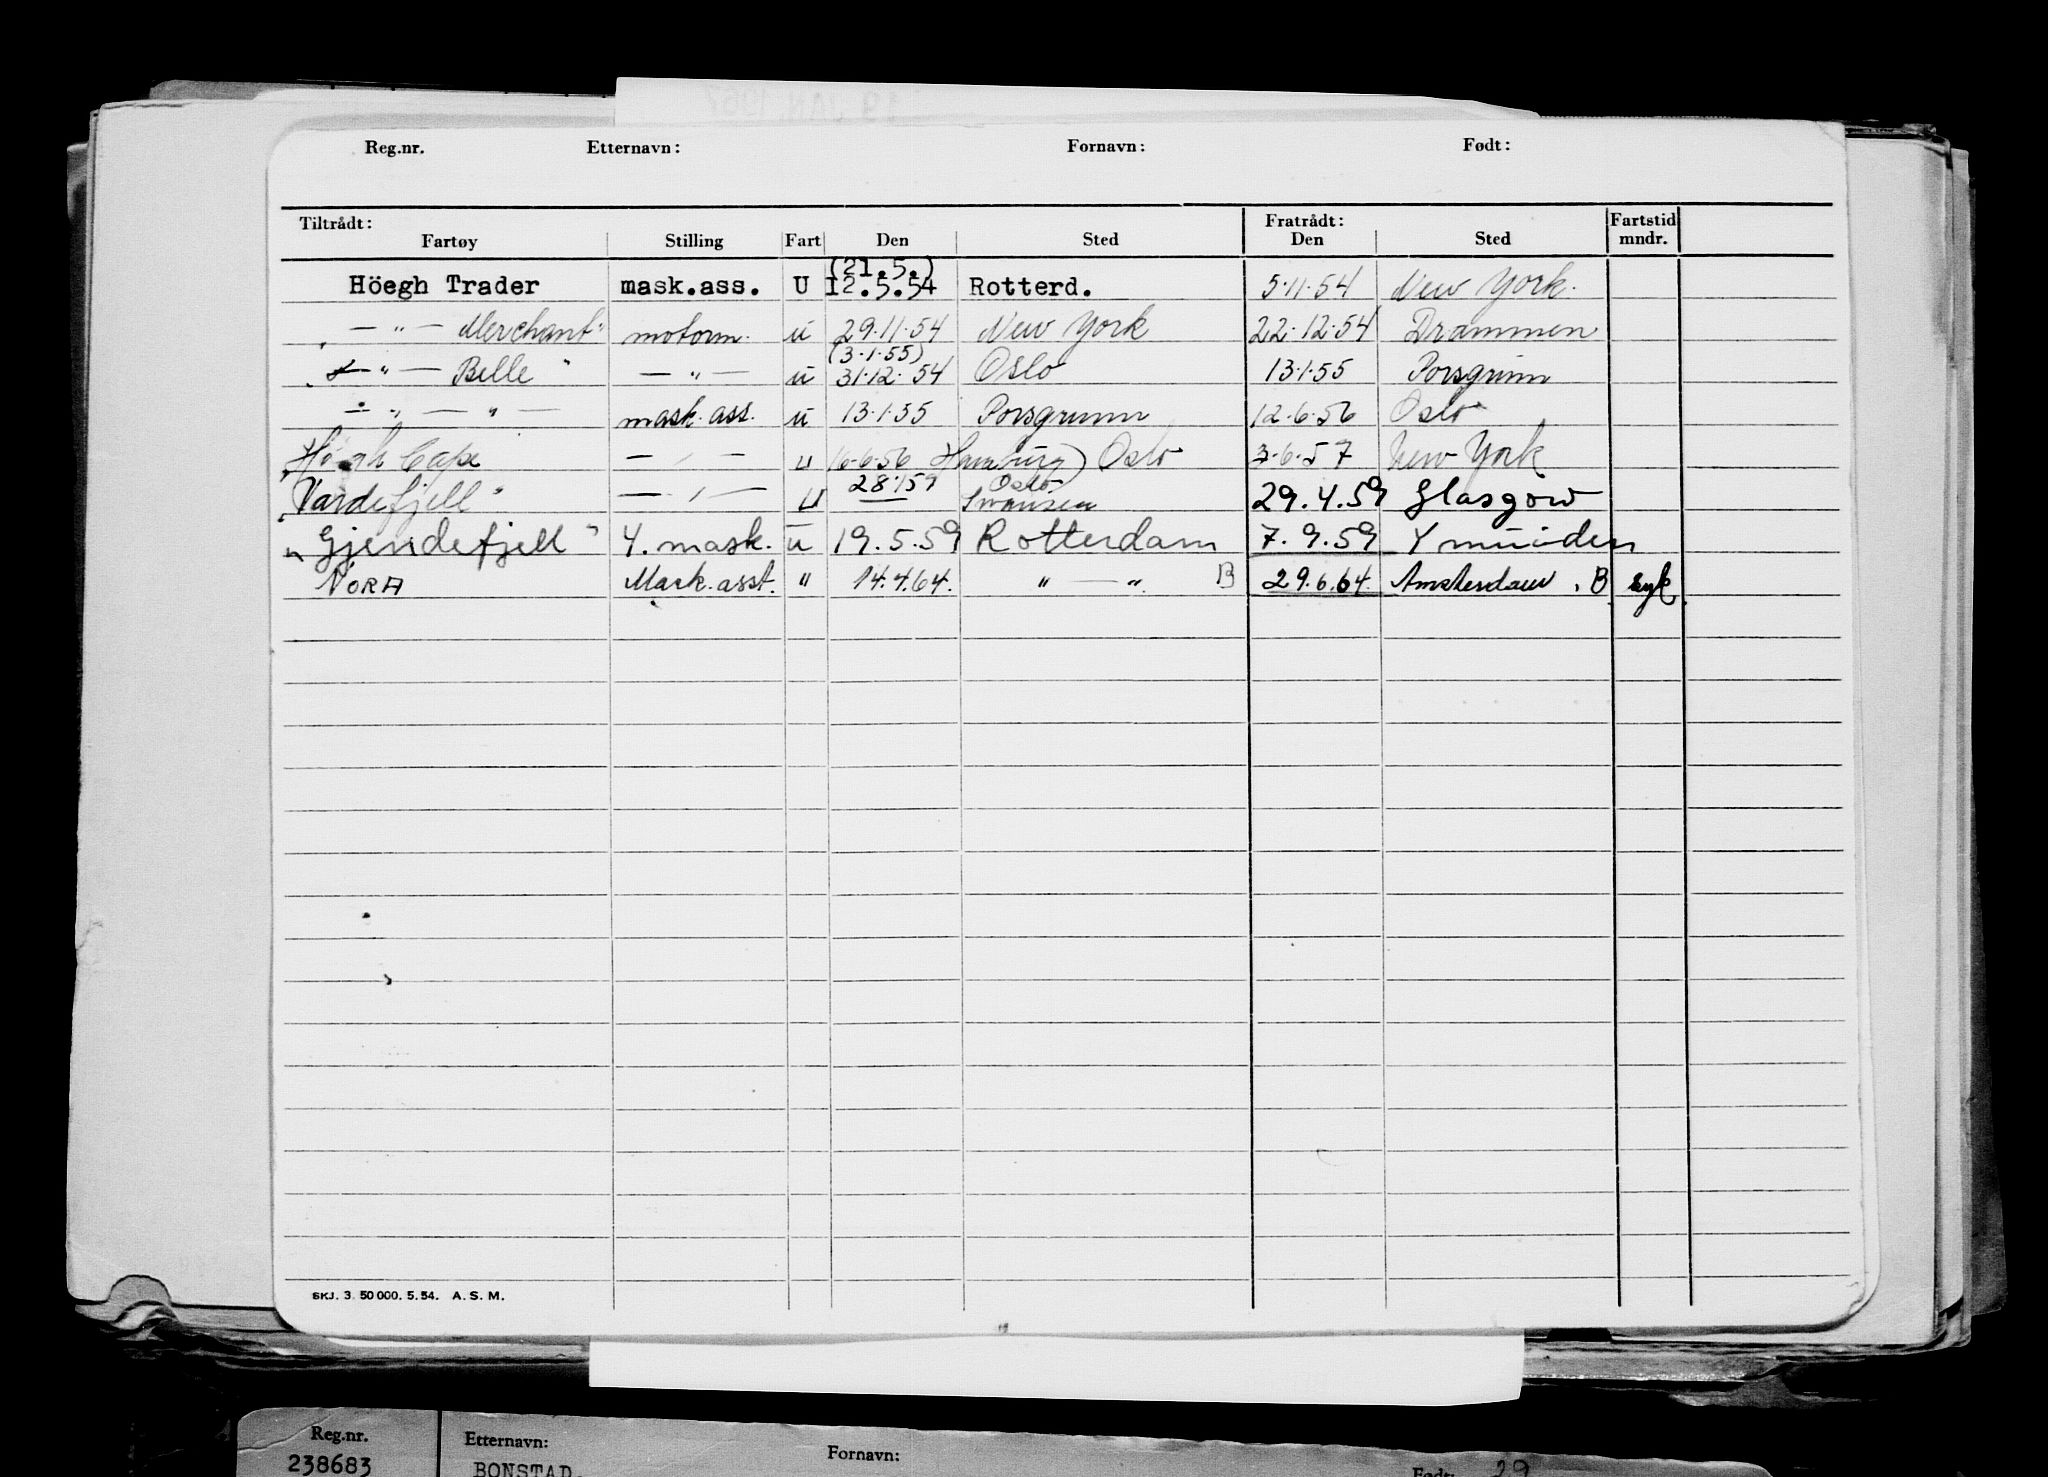 Reg.nr. Etternavn: Fornavn: Født:
Tiltrådt: Fratrådt: Fartstid
Fartøy Stilling Fart Den Sted Den Sted mndr.
(21.5.)
Höegh Trader mask.ass. U 12.5.54 Rotterd. 5.11.54 New York.
" — " — Merchant" motorm. u 29.11.54 New York 22.12.54 Drammen
(3.1.55)
" — " — Belle " — " — u 31.12.54 Oslo 13.1.55 Porsgrunn
— " — " — mask. ass. u 13.1.55 Porsgrunn 12.6.56 Oslo
Höegh Cape — " — u 16.6.56 Hamburg) Oslo 3.6.57 New York
Oslo
"Vardefjell" — " — U 28.1.59 Swansea 29.4.59 Glasgow
"Gjendefjell" 4. mask. u 19.5.59 Rotterdam 7.9.59 Ymuiden
NORA Mask. asst. " 14.4.64. " — " B 29.6.64. Amsterdam . B syk.
SKJ. 3. 50 000. 5. 54. A. S. M.
Reg.nr. Etternavn: Fornavn: Født: 29
238683 BONSTAD.